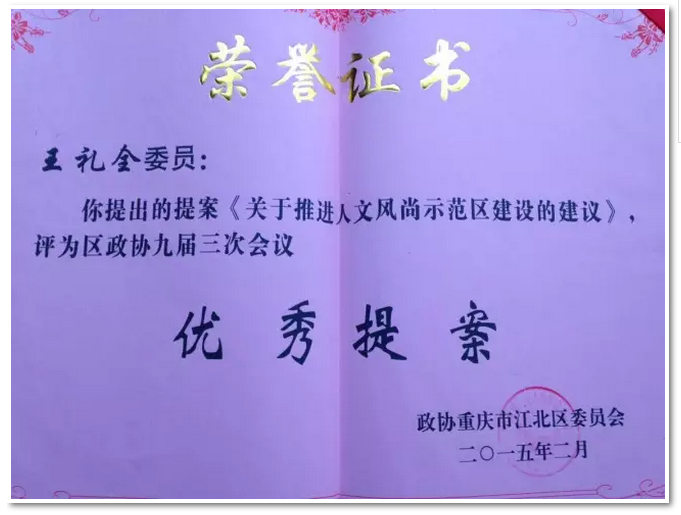 荣誉证书
王礼全委员：
你提出的提案《关于推进人文风尚示范区建设的建议》，
评为区政协九届三次会议
优秀提案
政协重庆市江北区委员会
二〇一五年二月